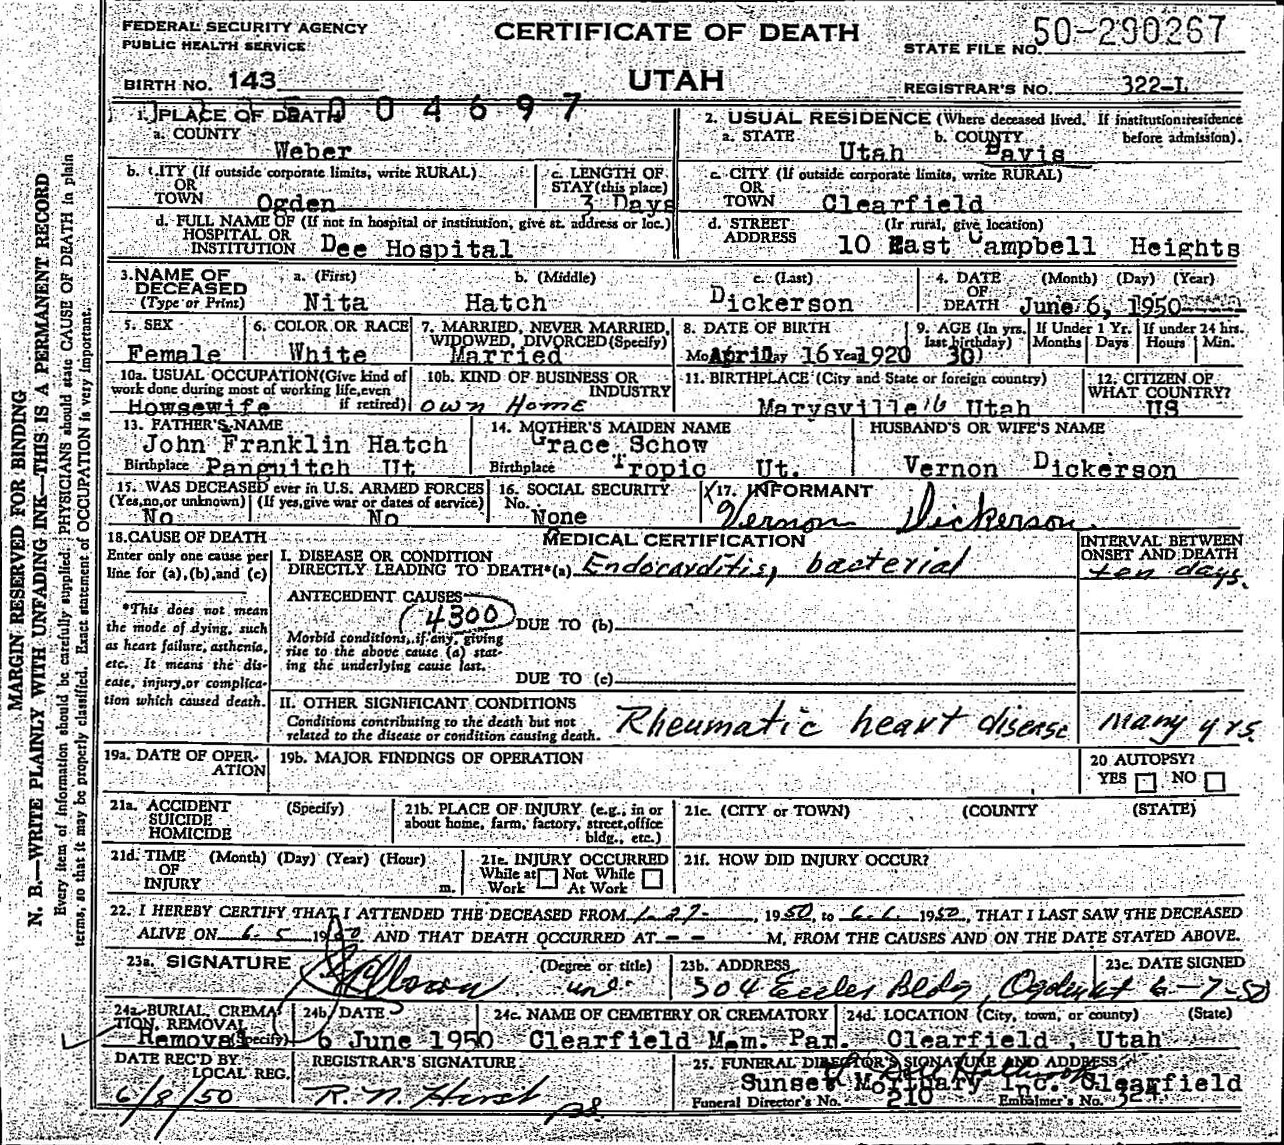 FEDERAL SECURITY AGENCY
PUBLIC HEALTH SERVICE
CERTIFICATE OF DEATH
STATE FILE NO. 50-290267
BIRTH NO. 143
UTAH
REGISTRAR'S NO. 322-L
004697
1. PLACE OF DEATH
a. COUNTY
Weber
2. USUAL RESIDENCE (Where deceased lived. If institution:residence before admission).
a. STATE b. COUNTY
Utah Davis
b. CITY (If outside corporate limits, write RURAL)
OR
TOWN Ogden
c. LENGTH OF
STAY (this place)
3 Days
c. CITY (If outside corporate limits, write RURAL)
OR
TOWN Clearfield
d. FULL NAME OF (If not in hospital or institution, give st. address or loc.)
HOSPITAL OR
INSTITUTION Dee Hospital
d. STREET (If rural, give location)
ADDRESS 10 East Campbell Heights
3. NAME OF DECEASED
(Type or Print)
a. (First) b. (Middle) c. (Last)
Nita Hatch Dickerson
4. DATE OF DEATH (Month) (Day) (Year)
June 6, 1950
5. SEX
Female
6. COLOR OR RACE
White
7. MARRIED, NEVER MARRIED,
WIDOWED, DIVORCED (Specify)
Married
8. DATE OF BIRTH
April 16 1920
9. AGE (In yrs. last birthday)
30
If Under 1 Yr.
Months Days
If under 24 hrs.
Hours Min.
10a. USUAL OCCUPATION (Give kind of
work done during most of working life, even
if retired)
Howsewife
10b. KIND OF BUSINESS OR
INDUSTRY
Own Home
11. BIRTHPLACE (City and State or foreign country)
Marysville Utah
12. CITIZEN OF
WHAT COUNTRY?
US
13. FATHER'S NAME
John Franklin Hatch
Birthplace Panguitch Ut
14. MOTHER'S MAIDEN NAME
Grace Schow
Birthplace Tropic Ut.
HUSBAND'S OR WIFE'S NAME
Vernon Dickerson
15. WAS DECEASED ever in U.S. ARMED FORCES
(Yes, no, or unknown) (If yes, give war or dates of service)
No No
16. SOCIAL SECURITY
No.
None
17. INFORMANT
Vernon Dickerson
18. CAUSE OF DEATH
Enter only one cause per
line for (a), (b), and (c)
*This does not mean
the mode of dying, such
as heart failure, asthenia,
etc. It means the dis-
ease, injury, or complica-
tion which caused death.
MEDICAL CERTIFICATION
INTERVAL BETWEEN
ONSET AND DEATH
I. DISEASE OR CONDITION
DIRECTLY LEADING TO DEATH*(a) Endocarditis, bacterial
ten days.
ANTECEDENT CAUSES
4300 DUE TO (b)
Morbid conditions, if any, giving
rise to the above cause (a) stat-
ing the underlying cause last.
DUE TO (c)
II. OTHER SIGNIFICANT CONDITIONS
Conditions contributing to the death but not
related to the disease or condition causing death.
Rheumatic heart disease Many yrs.
19a. DATE OF OPER-
ATION
19b. MAJOR FINDINGS OF OPERATION
20 AUTOPSY?
YES NO
21a. ACCIDENT
SUICIDE
HOMICIDE
(Specify)
21b. PLACE OF INJURY (e.g., in or
about home, farm, factory, street, office
bldg., etc.)
21c. (CITY or TOWN) (COUNTY) (STATE)
21d. TIME OF INJURY (Month) (Day) (Year) (Hour)
m.
21e. INJURY OCCURRED
While at Work Not While At Work
21f. HOW DID INJURY OCCUR?
22. I HEREBY CERTIFY THAT I ATTENDED THE DECEASED FROM 1-27-, 1950, to 6-6, 1950, THAT I LAST SAW THE DECEASED
ALIVE ON 6-5 1950 AND THAT DEATH OCCURRED AT -- M, FROM THE CAUSES AND ON THE DATE STATED ABOVE.
23a. SIGNATURE (Degree or title)
23b. ADDRESS
504 Eccles Bldg, Ogden
23c. DATE SIGNED
6-7-50
24a. BURIAL, CREMA-
TION, REMOVAL
(Specify)
Removal
24b. DATE
6 June 1950
24c. NAME OF CEMETERY OR CREMATORY
Clearfield Mem. Par.
24d. LOCATION (City, town, or county) (State)
Clearfield, Utah
DATE REC'D BY
LOCAL REG.
6/8/50
REGISTRAR'S SIGNATURE
R. N. Hirst
25. FUNERAL DIRECTOR'S SIGNATURE AND ADDRESS
Sunset Mortuary Inc. Clearfield
Funeral Director's No. 210 Embalmer's No. 324
MARGIN RESERVED FOR BINDING
N. B.—WRITE PLAINLY WITH UNFADING INK—THIS IS A PERMANENT RECORD
Every item of information should be carefully supplied. PHYSICIANS should state CAUSE OF DEATH in plain
terms, so that it may be properly classified. Exact statement of OCCUPATION is very important.